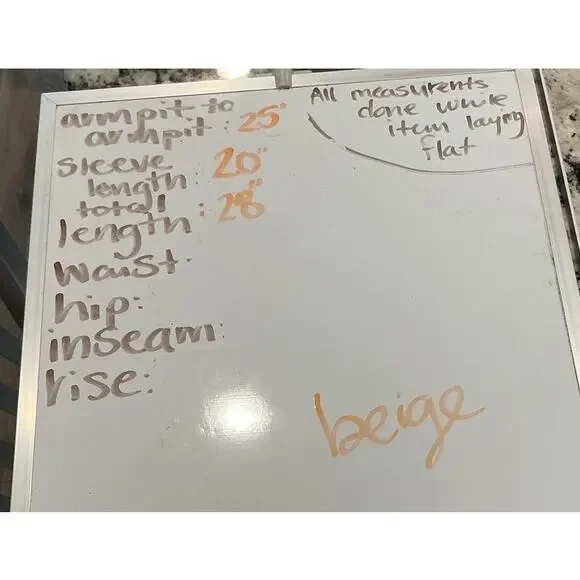 armpit to
armpit: 25"
sleeve
length: 20"
total
length: 28"
waist:
hip:
inseam:
rise:
All measurents
done while
item laying
flat
beige